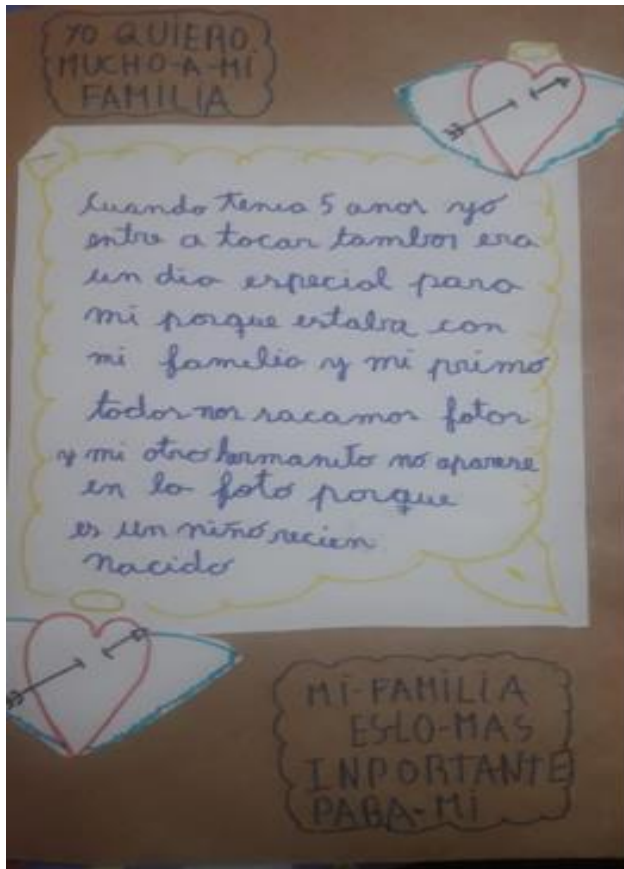 YO QUIERO
MUCHO-A-MI
FAMILIA
Cuando tenia 5 anos yo
entre a tocar tambor era
un dia especial para
mi porque estaba con
mi familia y mi primo
todos nos sacamos fotos
y mi otro hermanito no aparere
en la foto porque
es un niño recien
nacido
MI-FAMILIA
ES-LO-MAS
INPORTANTE
PARA-MI